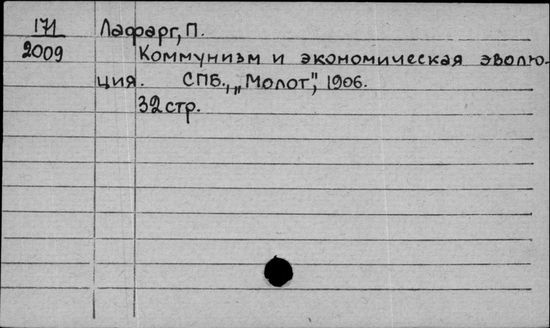 171 Лафарг, П.
2009 Коммунизм и экономическая эволю-
ция. СПБ., „Молот", 1906.
32 стр.